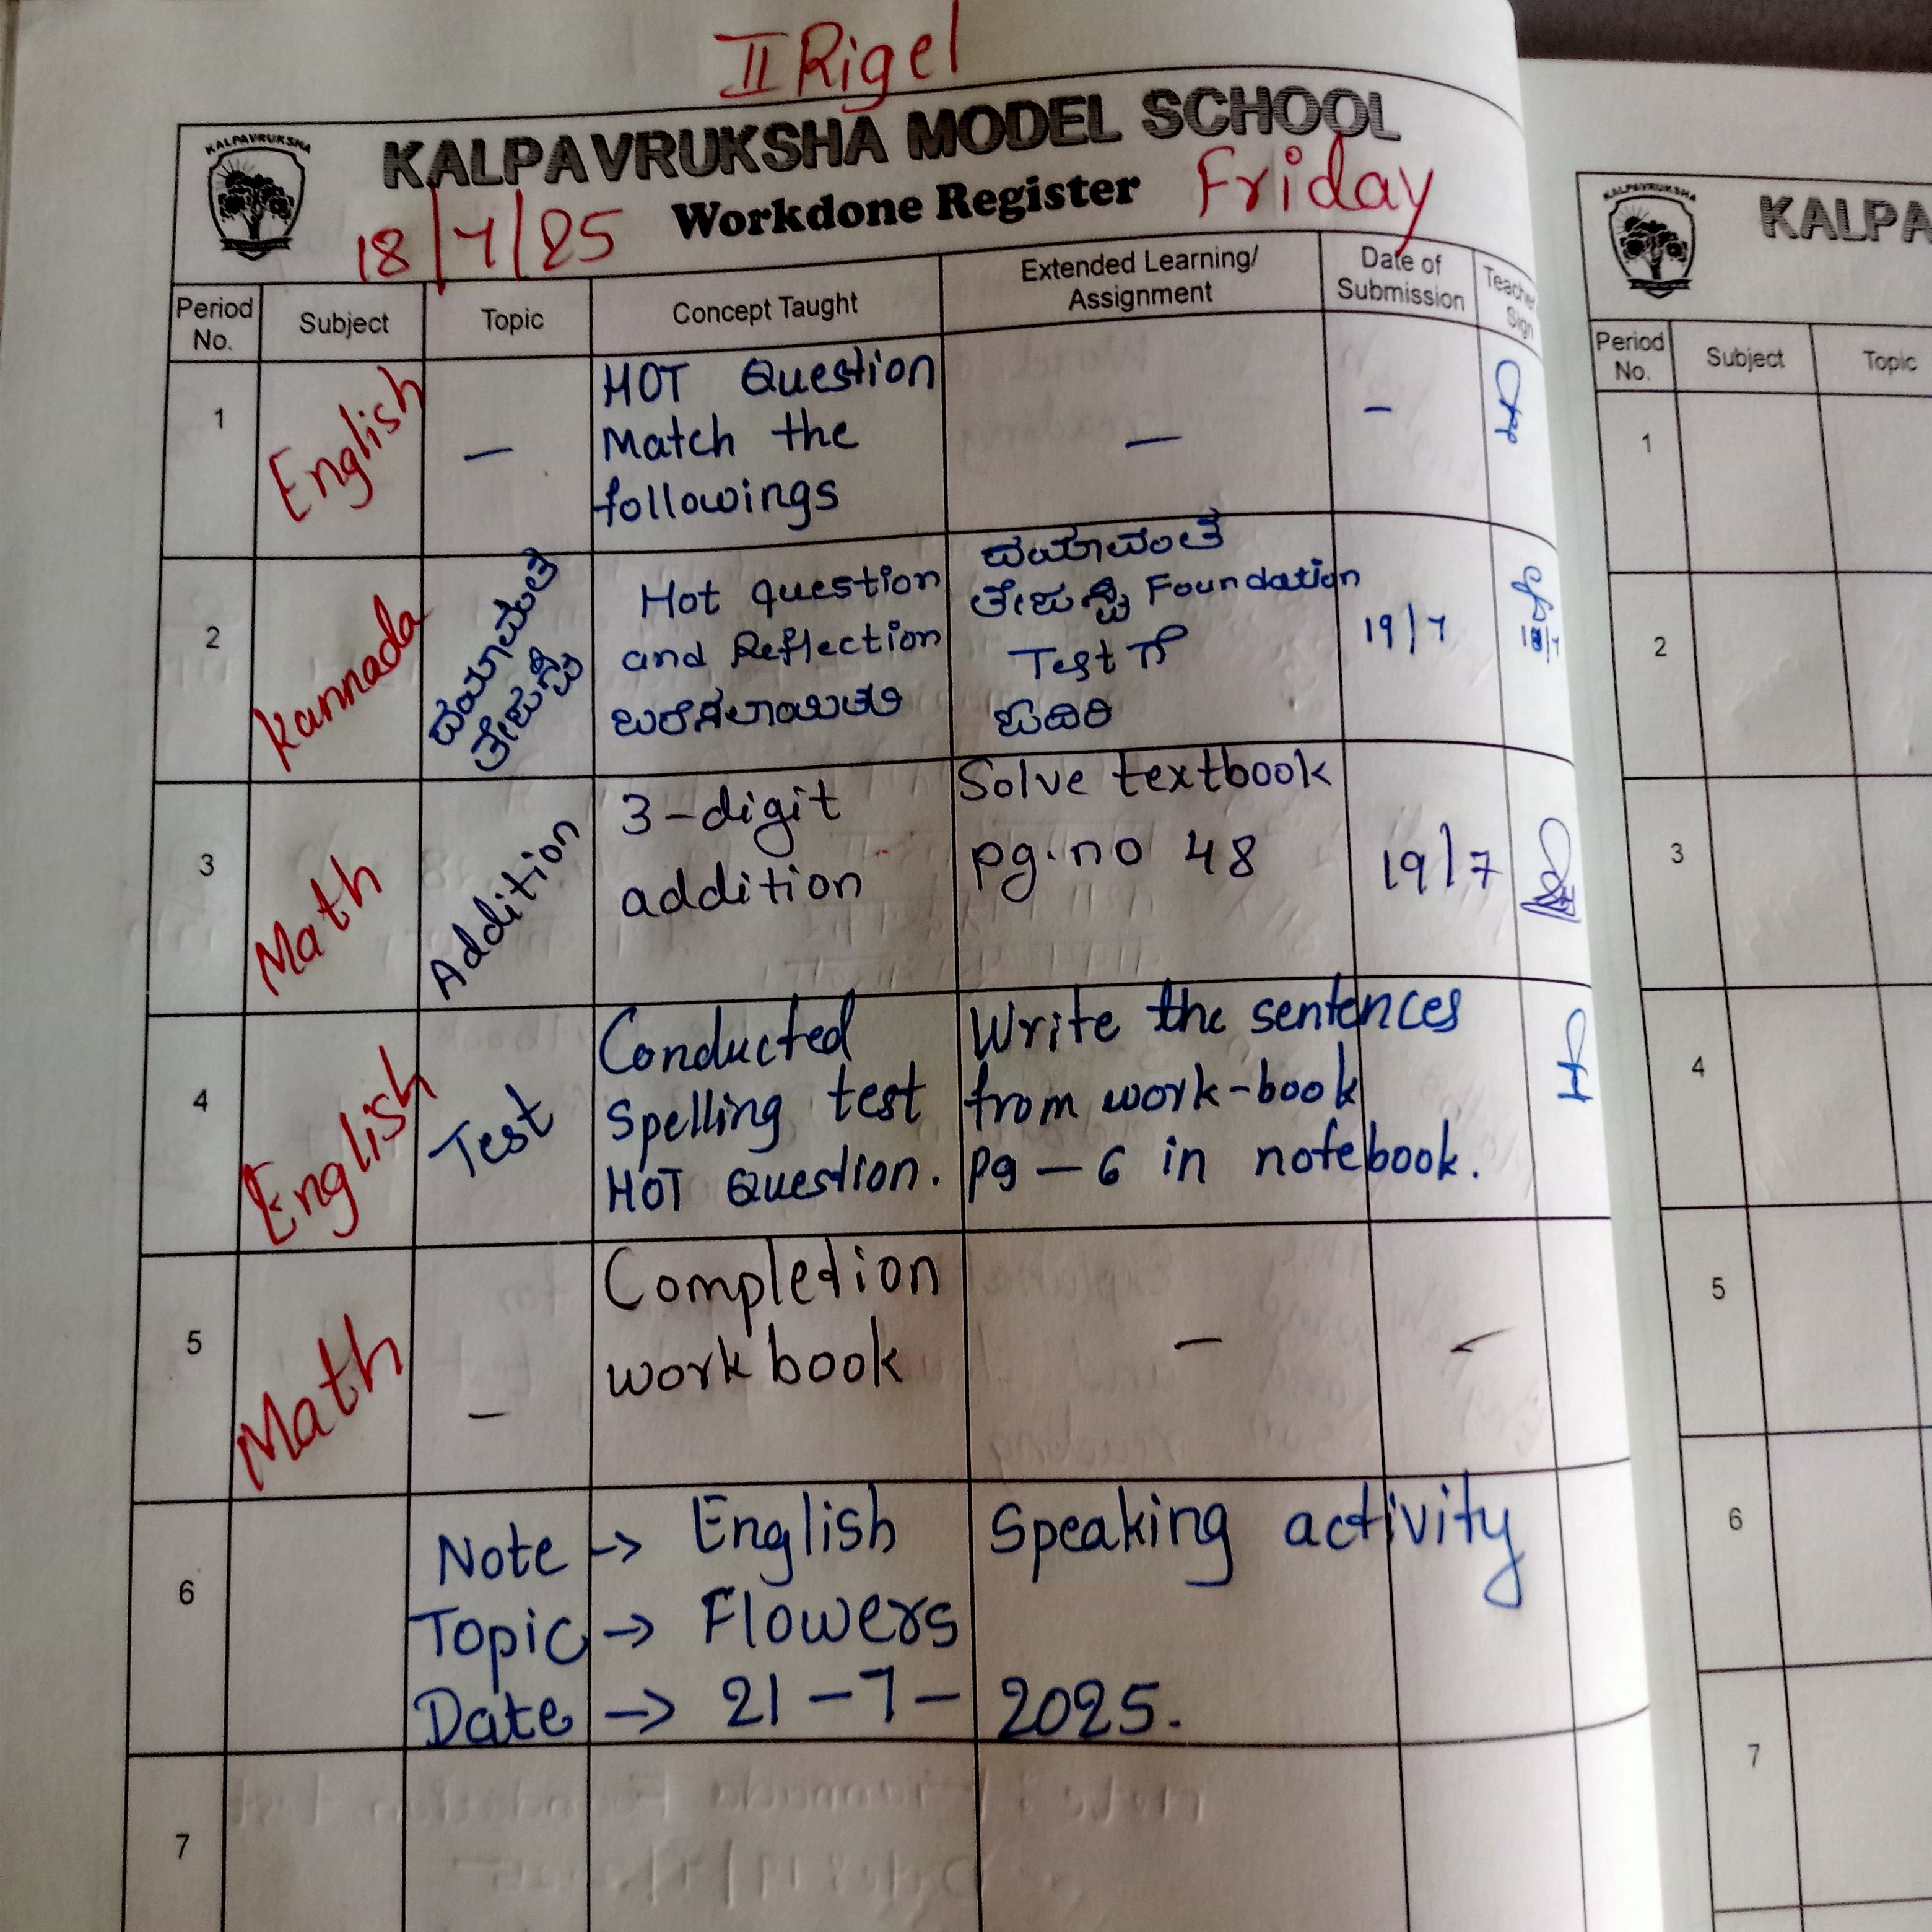 II Rigel
KALPAVRUKSHA
KALPAVRUKSHA MODEL SCHOOL
18/7/25 Workdone Register Friday
Period No. Subject Topic Concept Taught Extended Learning/ Assignment Date of Submission Teacher Sign
1 English — HOT Question — –
Match the
followings
2 Kannada ದಯಾವಂತ ತೇಜಸ್ವಿ
Hot question
and Reflection
ಬರೆಸಲಾಯಿತು
ದಯಾವಂತ
ತೇಜಸ್ವಿ Foundation
Test ಗೆ
ಓದಿರಿ
19/7
3 Math Addition
3-digit
addition
Solve textbook
pg.no 48
19/7
4 English Test
Conducted
Spelling test
HOT Question.
Write the sentences
from work-book
pg – 6 in notebook.
5 Math —
Completion
work book
—
6
Note -> English Speaking activity
Topic -> Flowers
Date -> 21-7-2025.
7
KALPAVRUKSHA
KALPA
Period No. Subject Topic
1
2
3
4
5
6
7